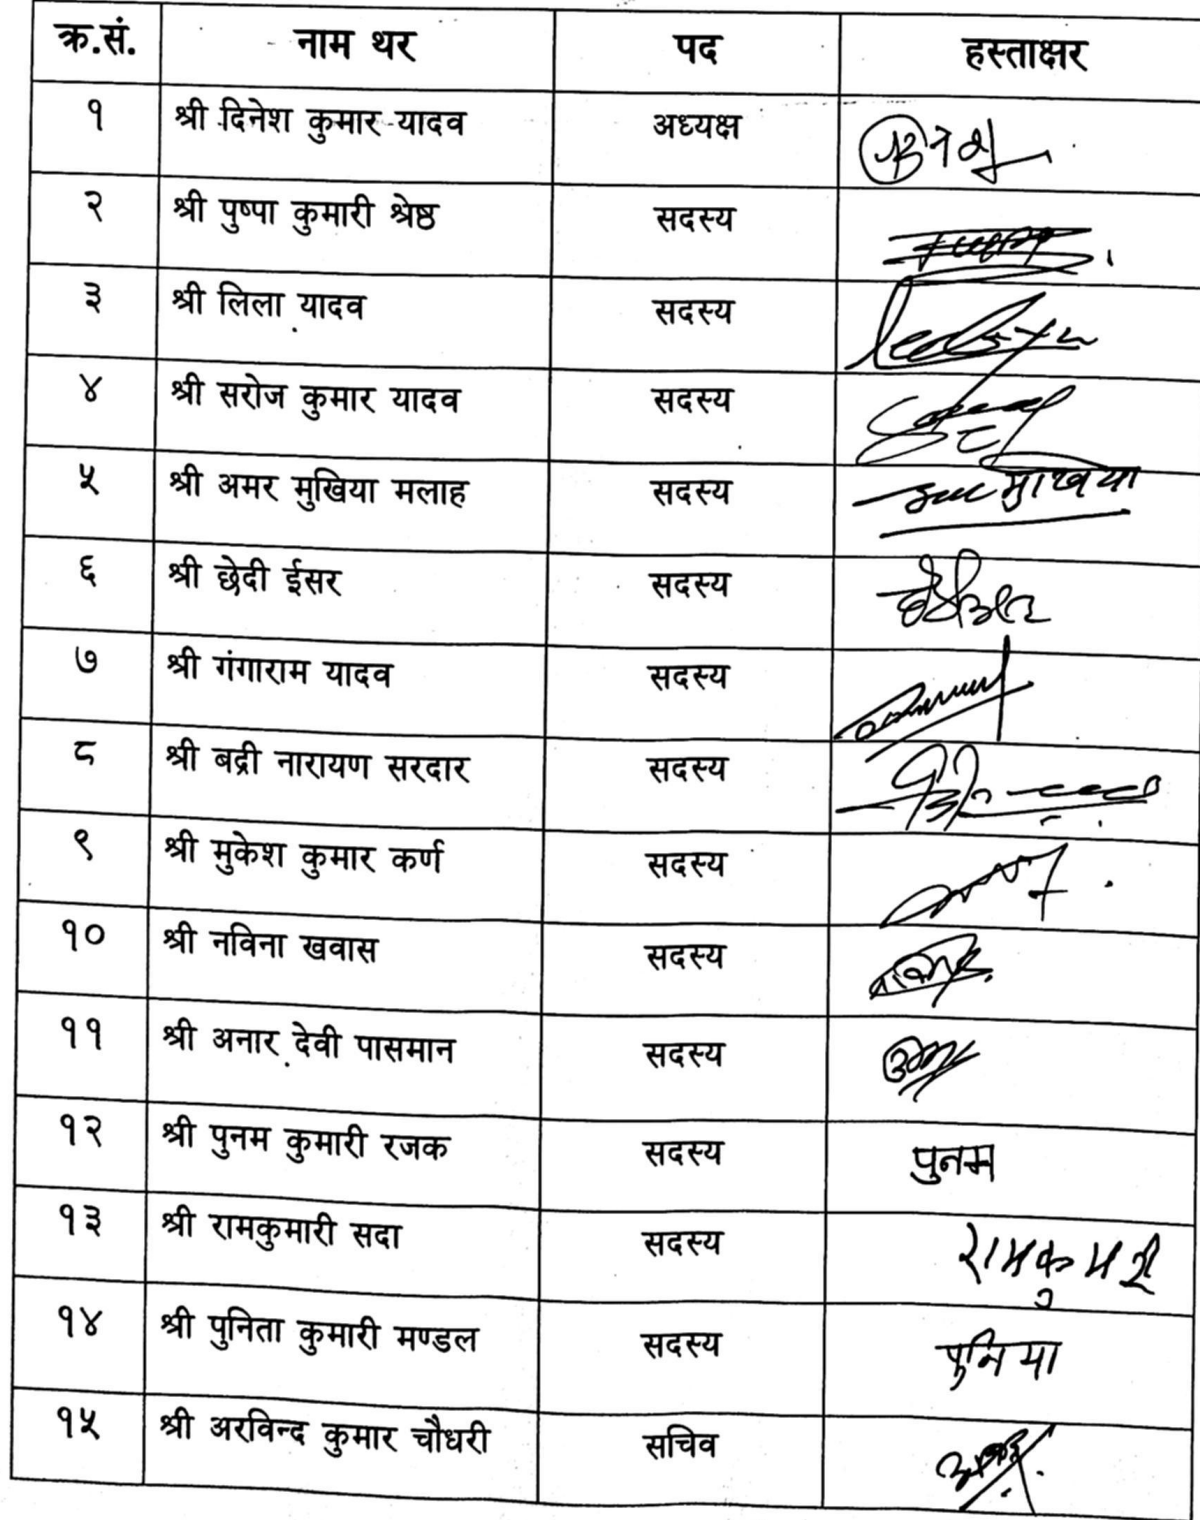 क्र.सं. नाम थर पद हस्ताक्षर
१ श्री दिनेश कुमार यादव अध्यक्ष
२ श्री पुष्पा कुमारी श्रेष्ठ सदस्य
३ श्री लिला यादव सदस्य
४ श्री सरोज कुमार यादव सदस्य
५ श्री अमर मुखिया मलाह सदस्य मुखिया
६ श्री छेदी ईसर सदस्य
७ श्री गंगाराम यादव सदस्य
८ श्री बद्री नारायण सरदार सदस्य
९ श्री मुकेश कुमार कर्ण सदस्य
१० श्री नविना खवास सदस्य
११ श्री अनार देवी पासमान सदस्य
१२ श्री पुनम कुमारी रजक सदस्य पुनम
१३ श्री रामकुमारी सदा सदस्य
१४ श्री पुनिता कुमारी मण्डल सदस्य
१५ श्री अरविन्द कुमार चौधरी सचिव